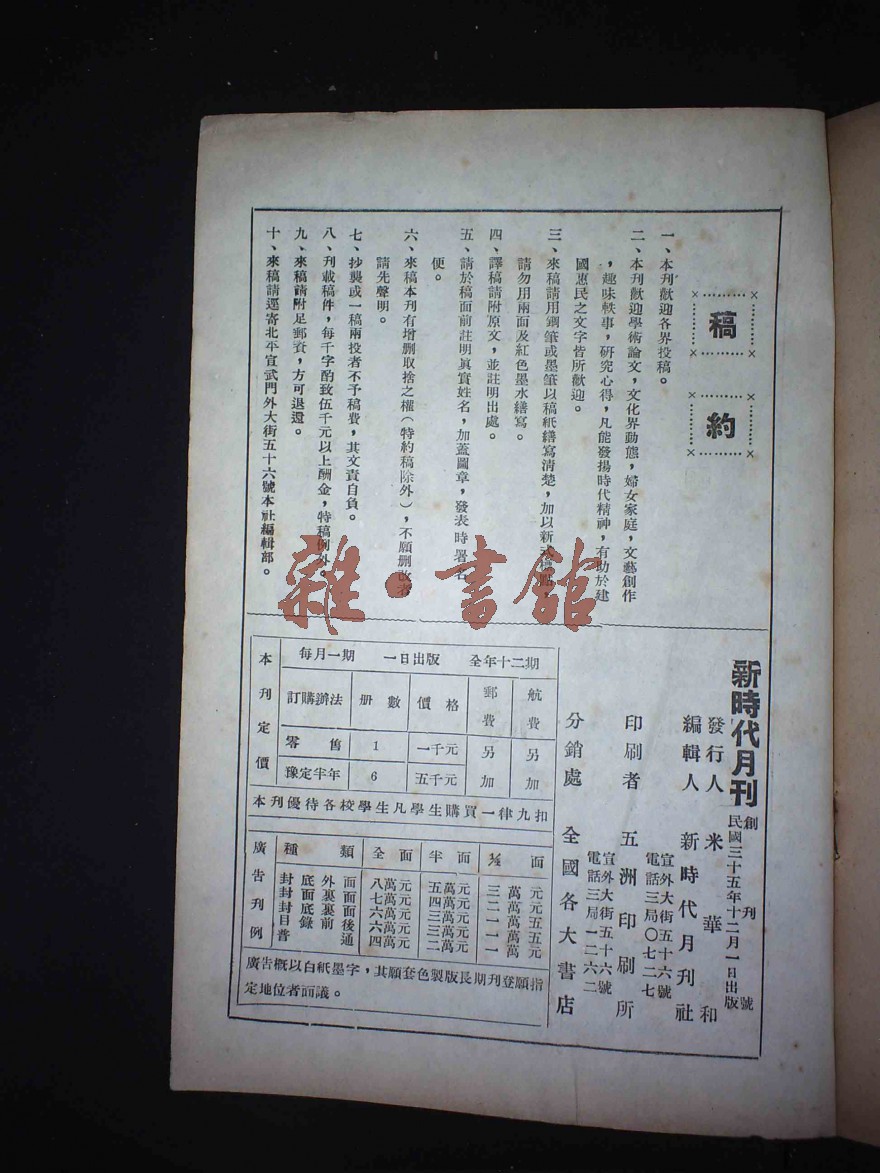 稿約
一、本刊歡迎各界投稿。
二、本刊歡迎學術論文，文化界動態，婦女家庭，文藝創作
，趣味軼事，研究心得，凡能發揚時代精神，有助於建
國惠民之文字皆所歡迎。
三、來稿請用鋼筆或墨筆以稿紙繕寫清楚，加以新式標點
請勿用兩面及紅色墨水繕寫。
四、譯稿請附原文，並註明出處。
五、請於稿面前註明眞實姓名，加蓋圖章，發表時署名
便。
六、來稿本刊有增删取捨之權（特約稿除外），不願删改者
請先聲明。
七、抄襲或一稿兩投者不予稿費，其文責自負。
八、刊載稿件，每千字酌致伍千元以上酬金，特稿例外。
九、來稿請附足郵資，方可退還。
十、來稿請逕寄北平宣武門外大街五十六號本社編輯部。
雜·書館
新時代月刊
創刊號
民國三十五年十二月一日出版
發行人 米華和
編輯人 新時代月刊社
宣外大街五十六號
電話三局〇七二七
印刷者 五洲印刷所
宣外大街五十六號
電話三局一二六二
分銷處 全國各大書店
本刊定價
每月一期 一日出版 全年十二期
訂購辦法 册數 價格 郵費 航費
零售 1 一千元 另加 另加
豫定半年 6 五千元 另加 另加
本刊優待各校學生凡學生購買一律九扣
廣告刊例
種類 全面 半面 面
封底外面 八萬元 五萬元
封面裏面 七萬元 四萬元
封底裏面 六萬元 三萬元
目錄前後 六萬元 三萬元
普通 四萬元 二萬元
廣告概以白紙墨字，其願套色製版長期刊登願指
定地位者面議。